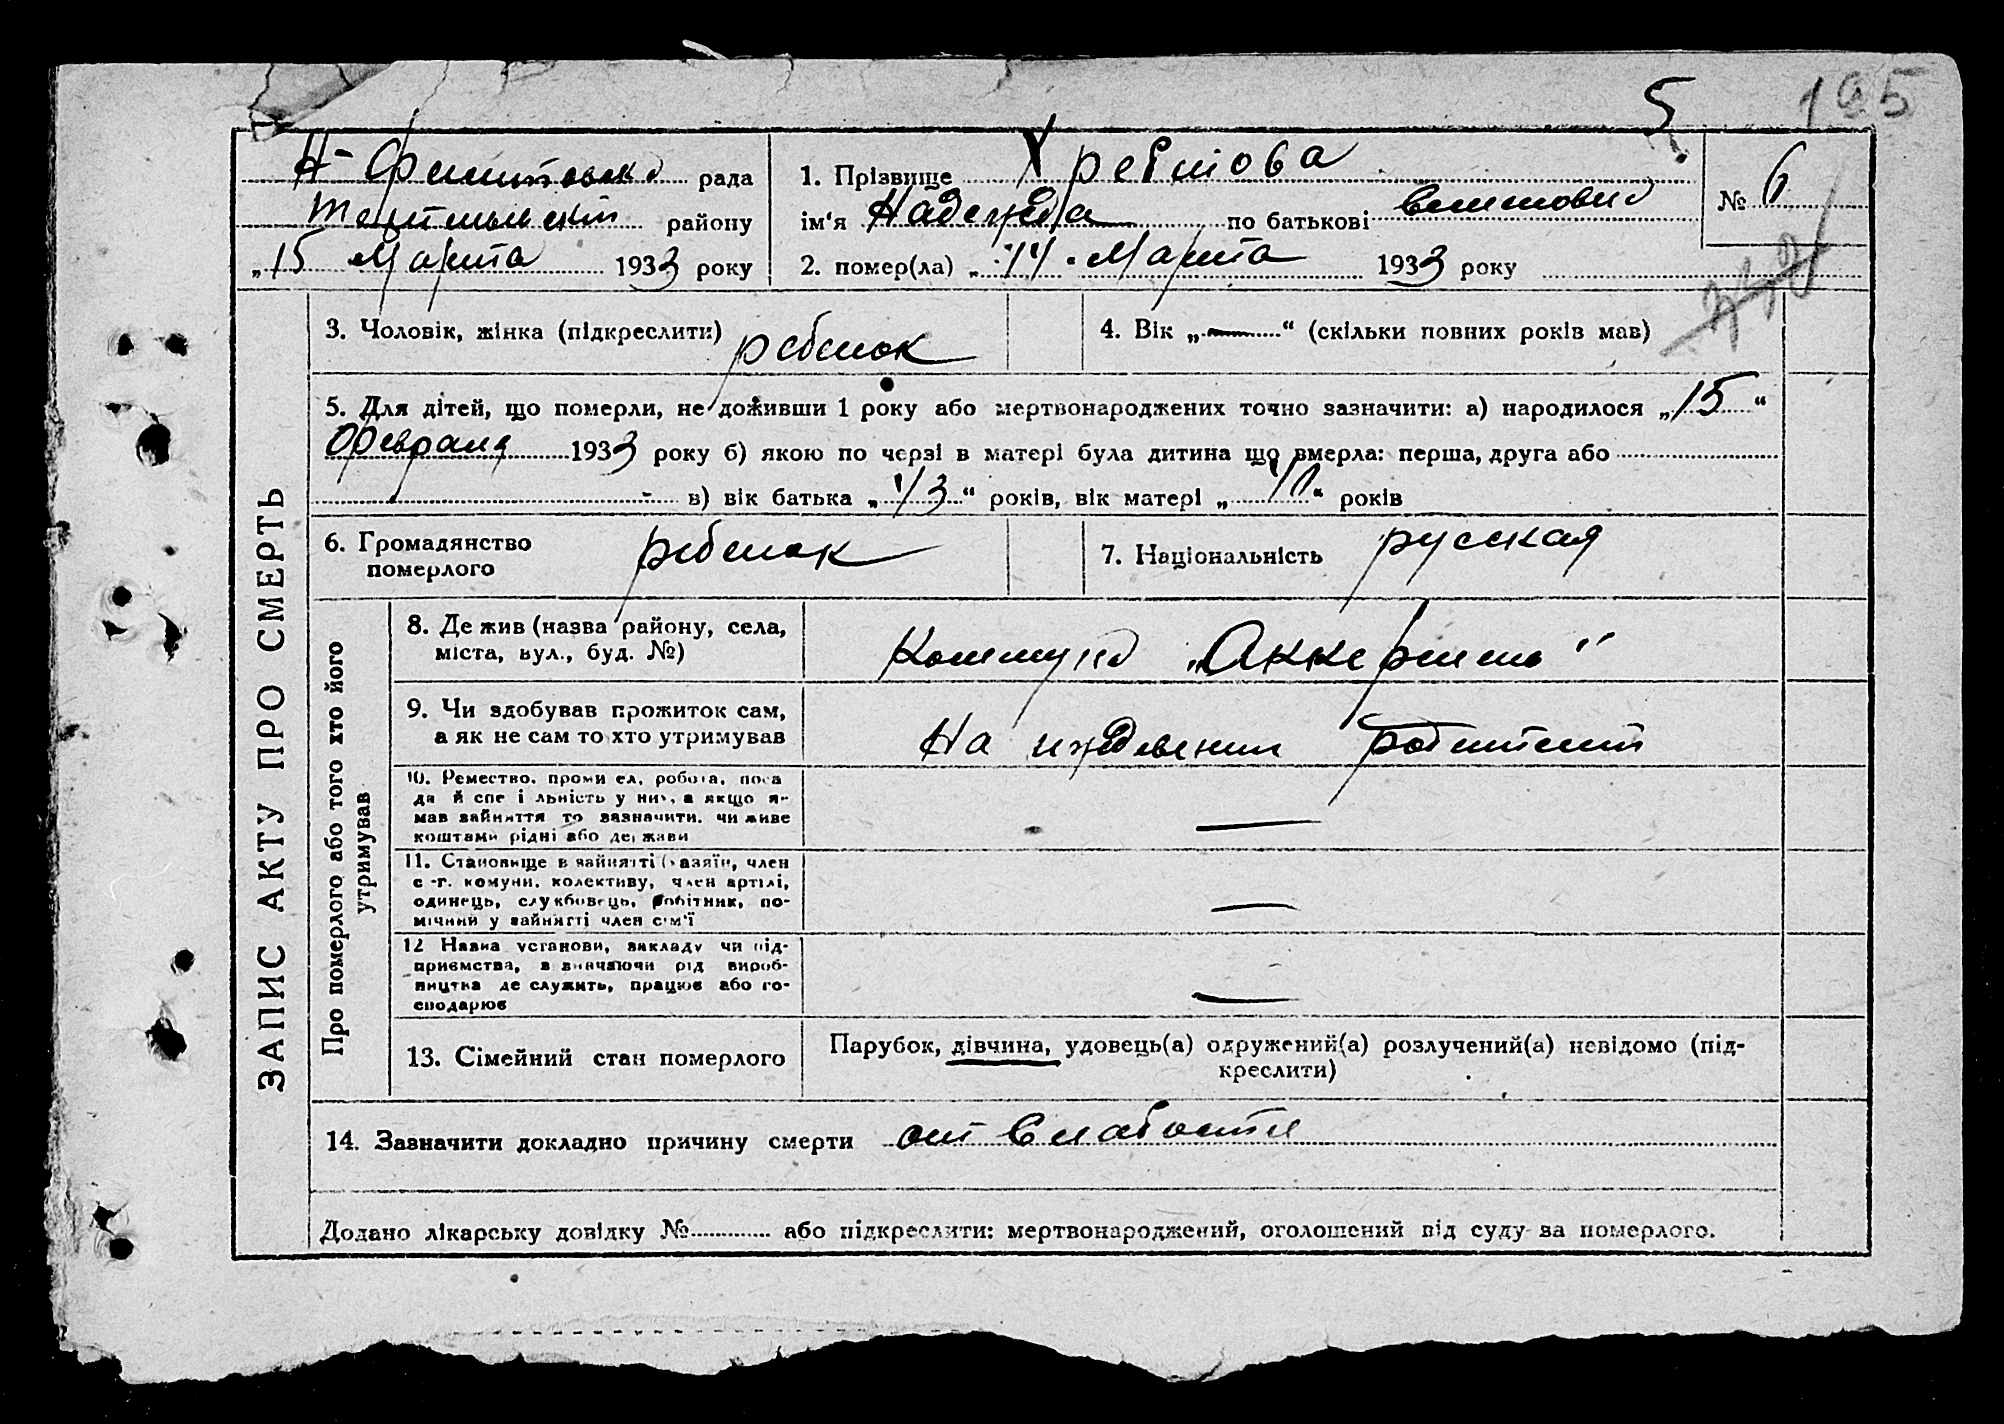 5 195
рада
району
„15 Марта 1933 року
1. Прізвище Хребтова
ім'я Надежда по батькові
2. помер(ла) „14 Марта 1933 року
№ 6
3. Чоловік, жінка (підкреслити) ребенок
4. Вік „—“ (скільки повних років мав)
5. Для дітей, що померли, не доживши 1 року або мертвонароджених точно зазначити: а) народилося „15“
Февраля 1933 року б) якою по черзі в матері була дитина що вмерла: перша, друга або
в) вік батька „ “ років, вік матері „ “ років
6. Громадянство
померлого
ребенок
7. Національність русская
ЗАПИС АКТУ ПРО СМЕРТЬ
Про померлого або того хто його
утримував
8. Де жив (назва району, села,
міста, вул., буд. №)
Коммуна „Аккермень“
9. Чи здобував прожиток сам,
а як не сам то хто утримував
На иждевении родителей
10. Ремество, проми ел, робота, поса
да й спе і льність у них, а якщо я-
мав зайняття то зазначити, чи живе
коштами рідні або держави
—
11. Становище в зайнятті (хазяїн, член
с-г. комуни, колективу, член артілі,
одинець, службовець, робітник, по-
мічний у зайнятті член сім'ї
—
12 Назва установи, закладу чи під-
приємства, зазначаючи рід вироб-
ництва де служить, працює або го-
сподарює
—
13. Сімейний стан померлого
Парубок, дівчина, удовець(а) одружений(а) розлучений(а) невідомо (під-
креслити)
14. Зазначити докладно причину смерти от слабости
Додано лікарську довідку № або підкреслити: мертвонароджений, оголошений від суду за померлого.